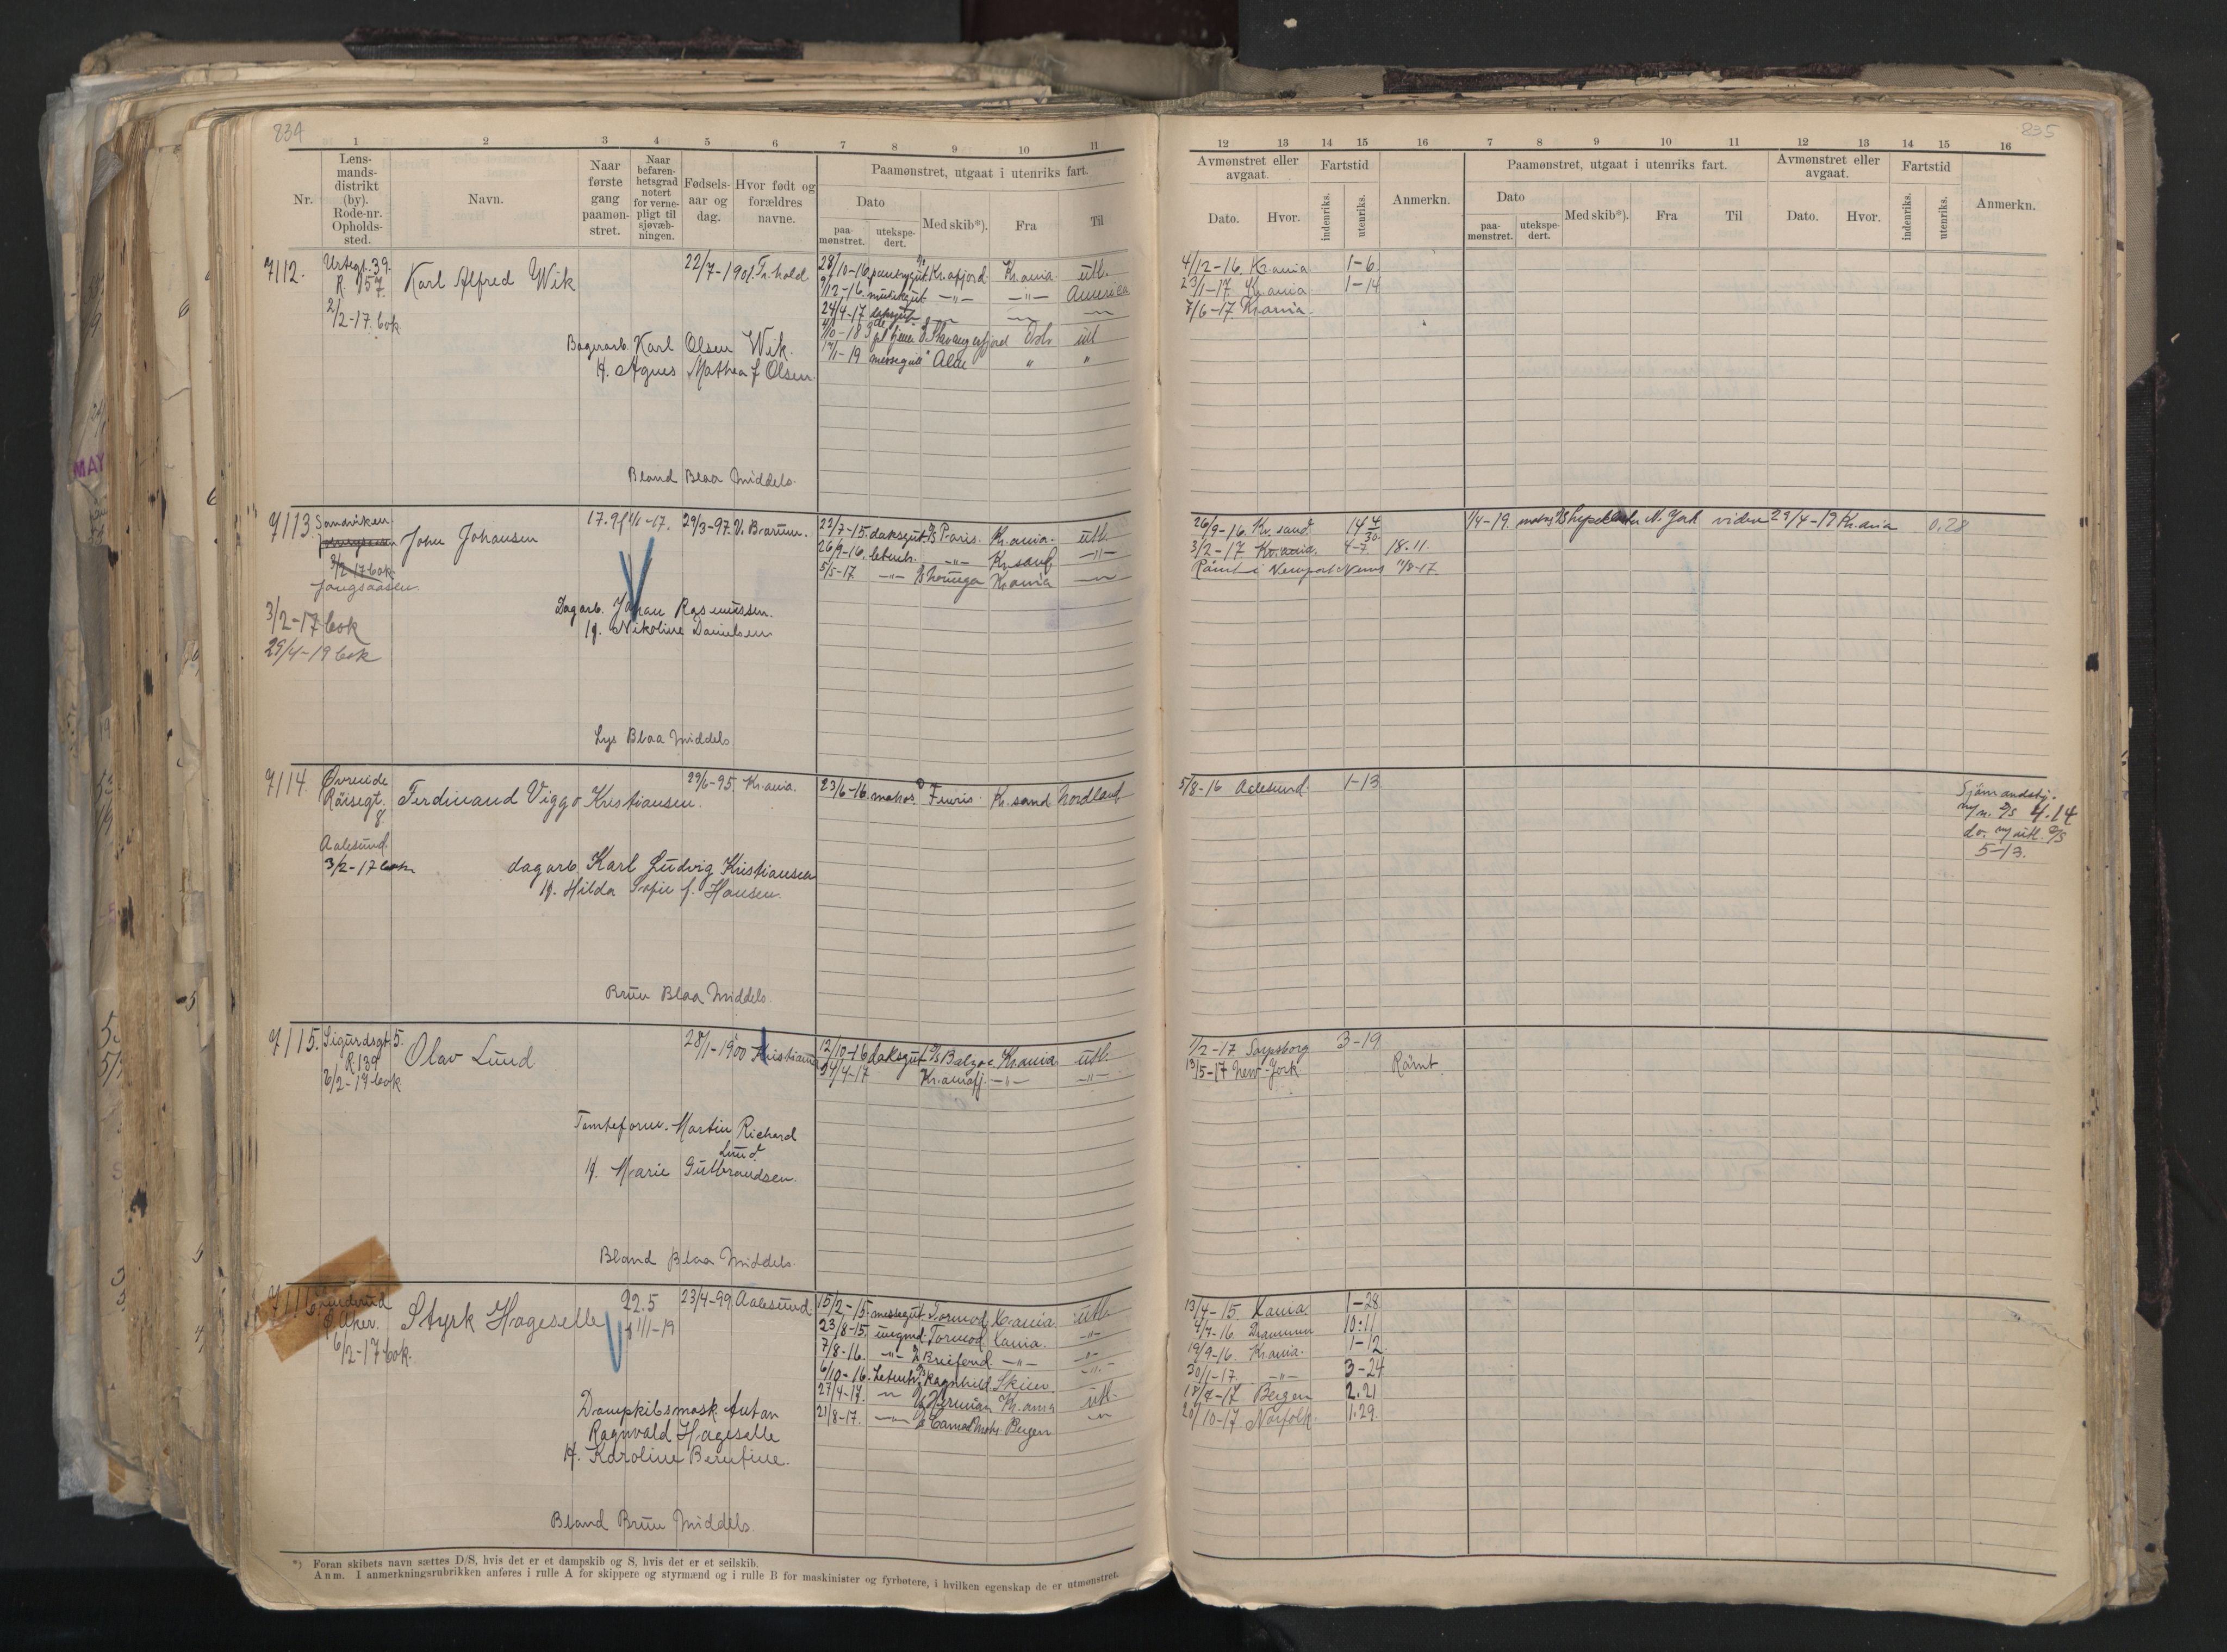 834
1 2 3 4 5 6 7 8 9 10 11
Nr.
Lens-
mands-
distrikt
(by).
Rode-nr.
Opholds-
sted.
Navn.
Naar
første
gang
paamøn-
stret.
Naar
befaren-
hetsgrad
notert
for verne-
pligt til
sjøvæb-
ningen.
Fødsels-
aar og
dag.
Hvor født og
forældres
navne.
Paamønstret, utgaat i utenriks fart.
Dato
paa-
mønstret.
utekspe-
dert.
Med skib*).
Fra
Til
7112.
Urtegt. 39.
R. 157
2/2-17 bok
Karl Alfred Wik
22/7-1901. Fr.hald
28/10-16 pantrygut Kr.afjord Kr.ania utl.
9/12-16. -"- -"- America
24/4-17
4/10-18 Stavangerfjord Oslo utl
messegut " "
Bagerarb. Karl Olsen Wik.
H. Agnes Mathea f Olsen.
Blond Blaa Middels.
7113.
Sandviken
3/2-17 bok
Jongsaasen.
3/2-17 bok
29/4-19 bok
John Johansen
29/3-97. V. Bærum.
22/7-15. daksgut D/S Paris. Kr.ania. utl.
26/9-16. letmtr. -"- Kr.sand -"-
5/5-17 -"- Kr.ania -"-
Dagarb. Johan Rasmussen.
H. Nikoline Danielsen
Lys Blaa Middels
7114
Øvrevide
Räisegt.
8.
Aalesund.
3/2-17 bok
Ferdinand Viggo Kristiansen.
29/6-95. Kr.ania.
23/6-16. matros Fenris. Kr.sand Nordland
dagarb. Karl Ludvig Kristiansen
H. Hilda Sofie f. Hansen.
Brun Blaa Middels.
7115.
Sigurdsgt. 5.
R 139
6/2-17 bok
Olav Lund
28/1-1900 Kristiania
12/10-16 daksgut D/S Balzac Kr.ania utl.
24/4-17 Kr.aniafj. -"- -"-
Tomteform. Martin Richard
Lund
H. Marie Gulbrandsen.
Blond Blaa Middels.
7116
Ø. Aker.
6/2-17 bok.
Styrk Hageselle
22.5
23/4-99. Aalesund
15/2-15. messegut. Tormod Kr.ania. utl.
23/8-15. ungmd. Tormod. Kania. -"-
7/8-16. -"- -"- -"-
6/10-16. Letmtr. Ragnhild. Skien. -"-
27/4-17. -"- Kr.ania utl.
21/8-17. -"- Bergen -"-
Dampskibsmask. Anton
Ragnvald Hageselle
H. Karoline Berntine.
Blond Brun Middels.
*) Foran skibets navn sættes D/S, hvis det er et dampskib og S, hvis det er et seilskib.
Anm. I anmerkningsrubrikken anføres i rulle A for skippere og styrmænd og i rulle B for maskinister og fyrbøtere, i hvilken egenskap de er utmønstret.
835
12 13 14 15 16 7 8 9 10 11 12 13 14 15 16
Avmønstret eller
avgaat.
Dato. Hvor.
Fartstid
indenriks.
utenriks.
Anmerkn.
Paamønstret, utgaat i utenriks fart.
Dato
paa-
mønstret.
utekspe-
dert.
Med skib*).
Fra
Til
Avmønstret eller
avgaat.
Dato. Hvor.
Fartstid
indenriks.
utenriks.
Anmerkn.
4/12-16. Kr.ania 1-6.
23/1-17. Kr.ania 1-14
7/6-17. Kr.ania.
26/9-16. Kr.sand 14
3/2-17. Kr.ania. 4-7. 18.11.
Rämt i Newport News 11/8-17.
1/4-19. N. York viden 29/4-19 Kr.ania 0.28
5/8-16 Aalesund. 1-13
4.14
5-13.
7/2-17 Sarpsborg 3-19
13/5-17 New-York Rämt.
13/4-15. Kania 1-28
4/7-16. Drammen 10.11
19/9-16. Kr.ania. 1-12.
30/1-17. -"- 3-24
18/7-17 Bergen 2.21
20/10-17 Norfolk. 1.29.